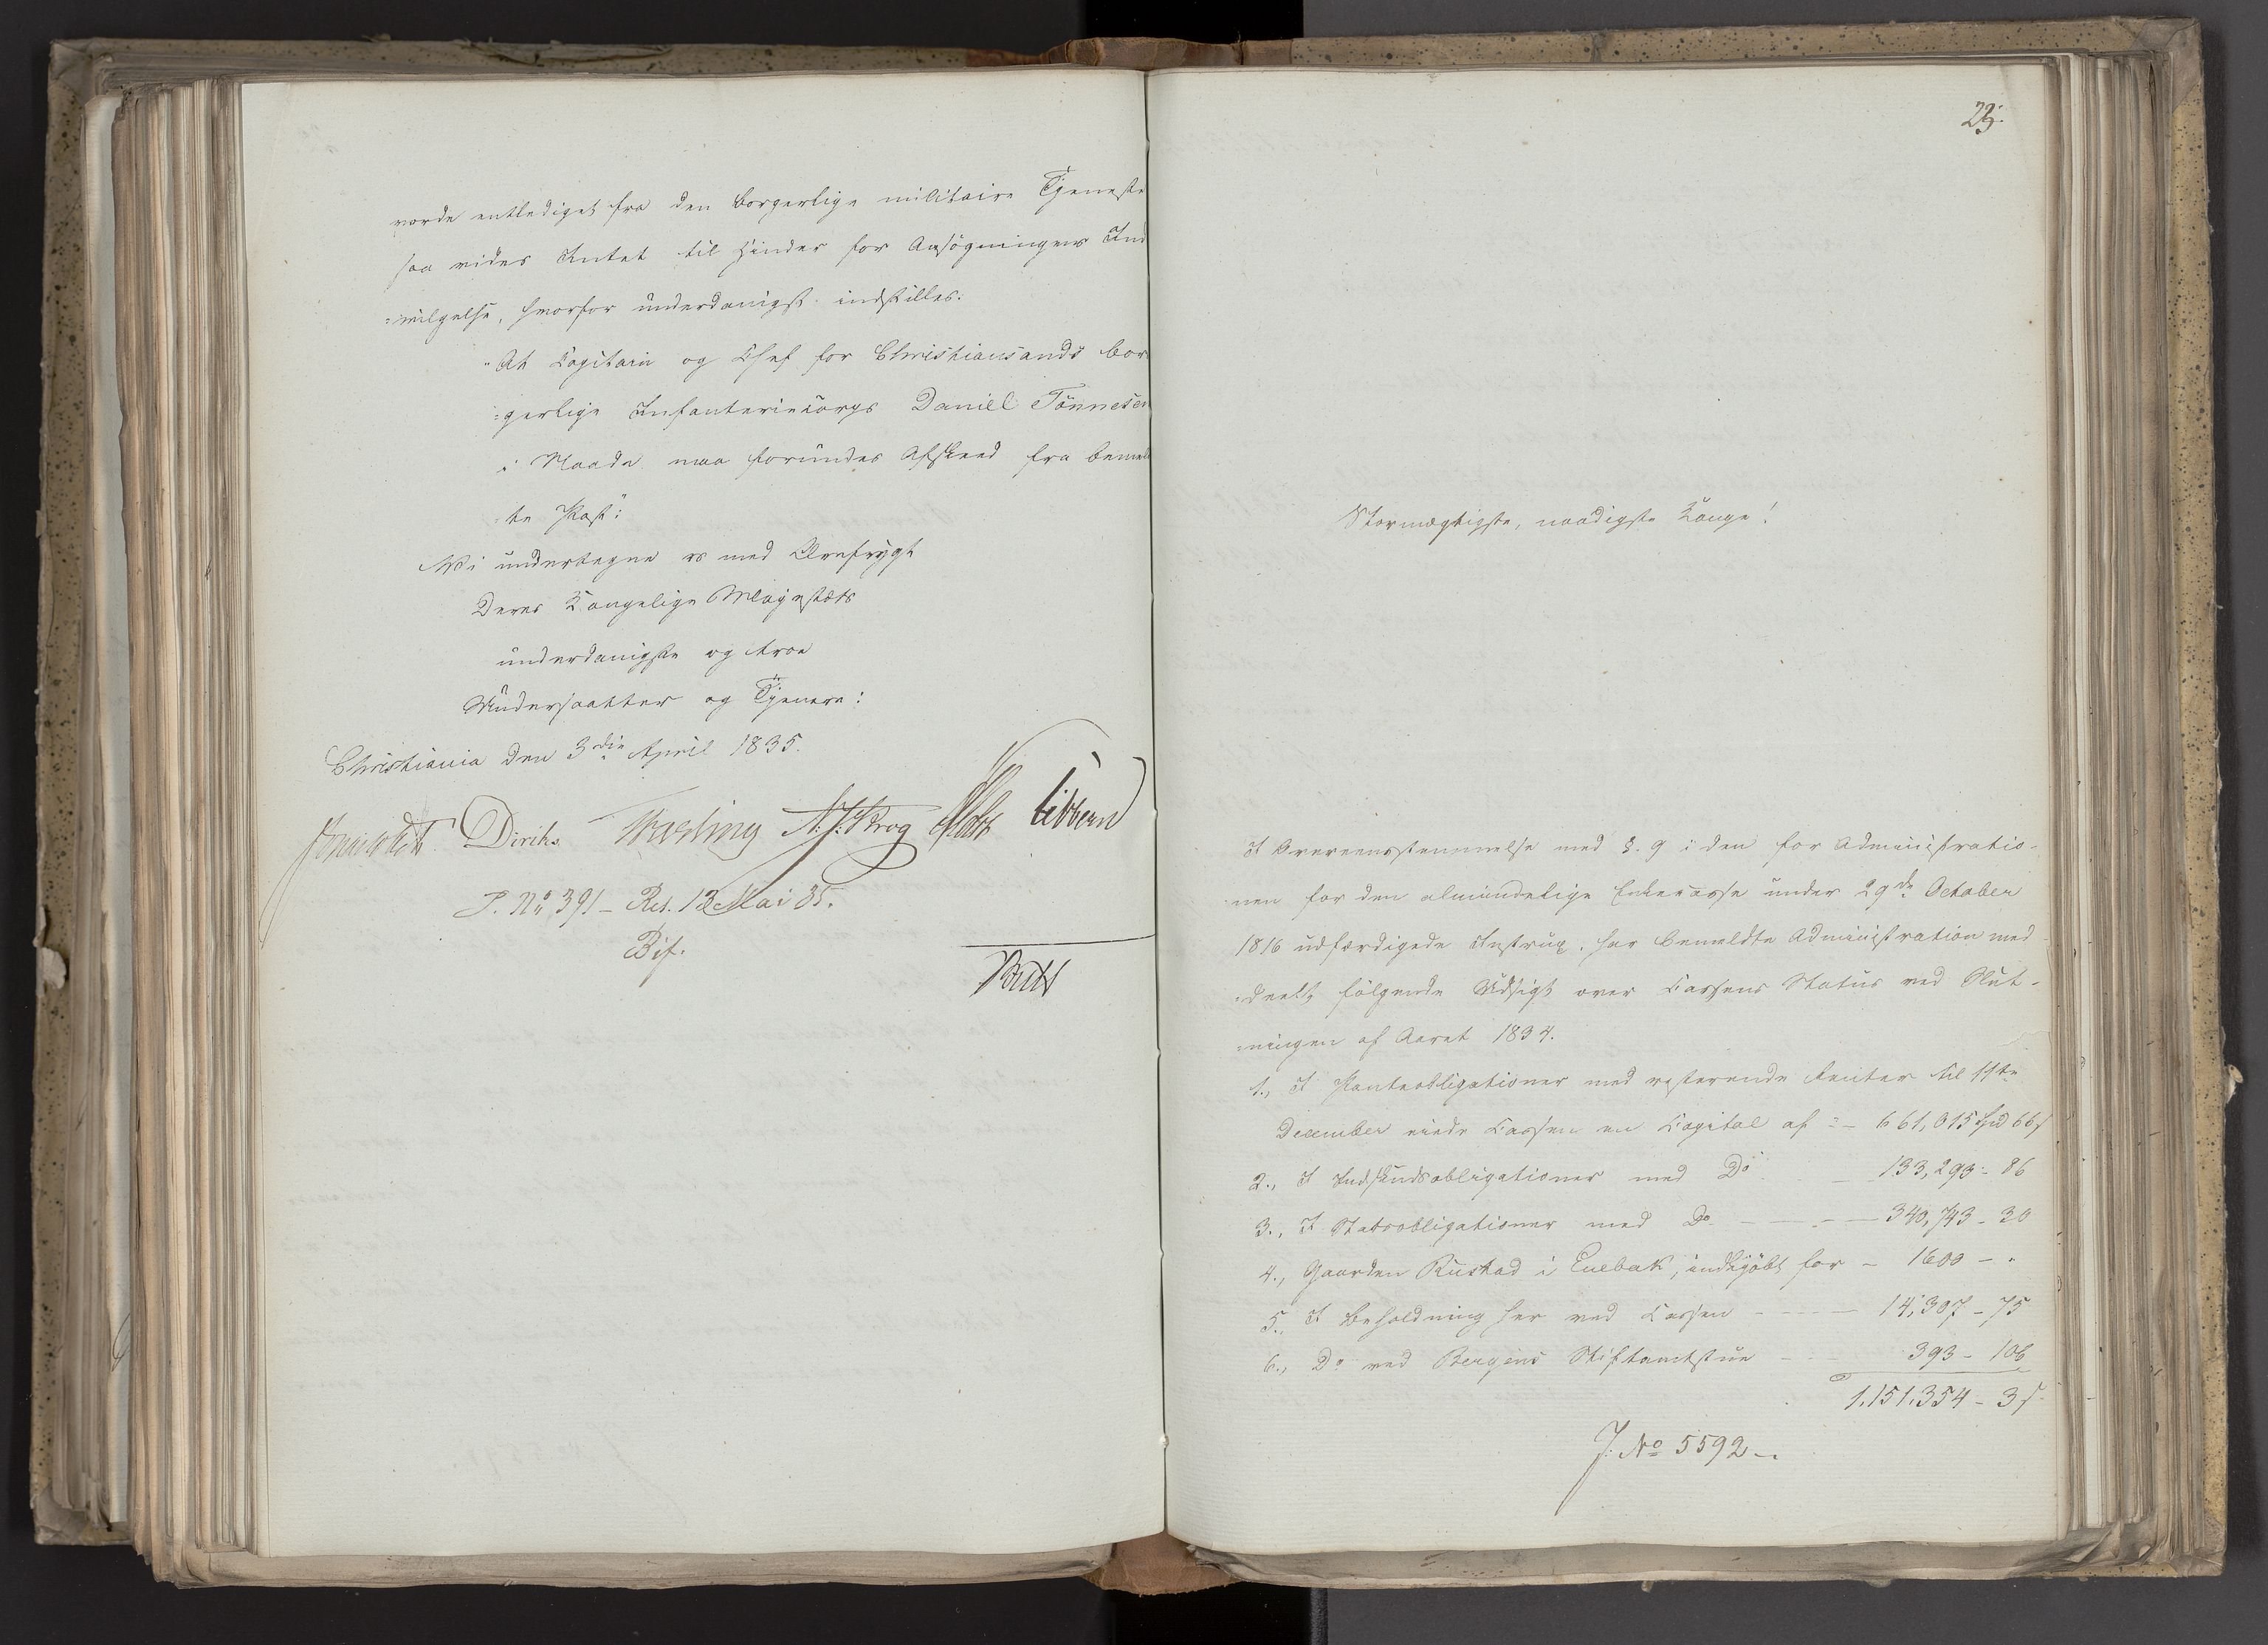 vorde entlediget fra den borgerlige militaire Tjeneste
saa vides Intet til Hinder for Ansögningens Ind
=vilgelse, hvorfor underdanigst indstilles:
"At Capitain og Chef for Christiansands bor=
=gerlige Infanteriecorps Daniel Tönnesen
i Naade maa forundes Afskeed fra bemeld
te Post":
Vi undertegne os med Ærefrygt
Deres Kongelige Majestæts
underdanigste og troe
Undersaatter og Tjenere:
Christiania den 3die April 1835.
Diriks N. J. Krog Holst Sibbern
P. No 391 – Res. 12 Mai 35.
Bif.
23.
Stormægtigste, naadigste Konge!
I Overeensstemmelse med §. 9 i den for Administratio-
nen for den almindelige Enkecasse under 29de October
1816 udfærdigede Instrux, har bemeldte Administration med=
=deelt, fölgende Udsigt over Cassens Status ved Slut-
=ningen af Aaret 1834.
1., I Panteobligationer med resterende Renter til 11te
December eiede Cassen en Capital af =– 661,015 Spd 66 s
2., I Indskudsobligationer med Do – 133,293 – 86
3., I Statsobligationer med Do – – – 340,743 – 30
4., Gaarden Rustad i Enebak, indkjöbt for – 1600 – "
5., I Beholdning her ved Cassen – – – – 14,307 – 75
6., Do ved Bergens Stiftamtstue – – 393 – 106
1,151,354 – 3 s
J. No 5592 –